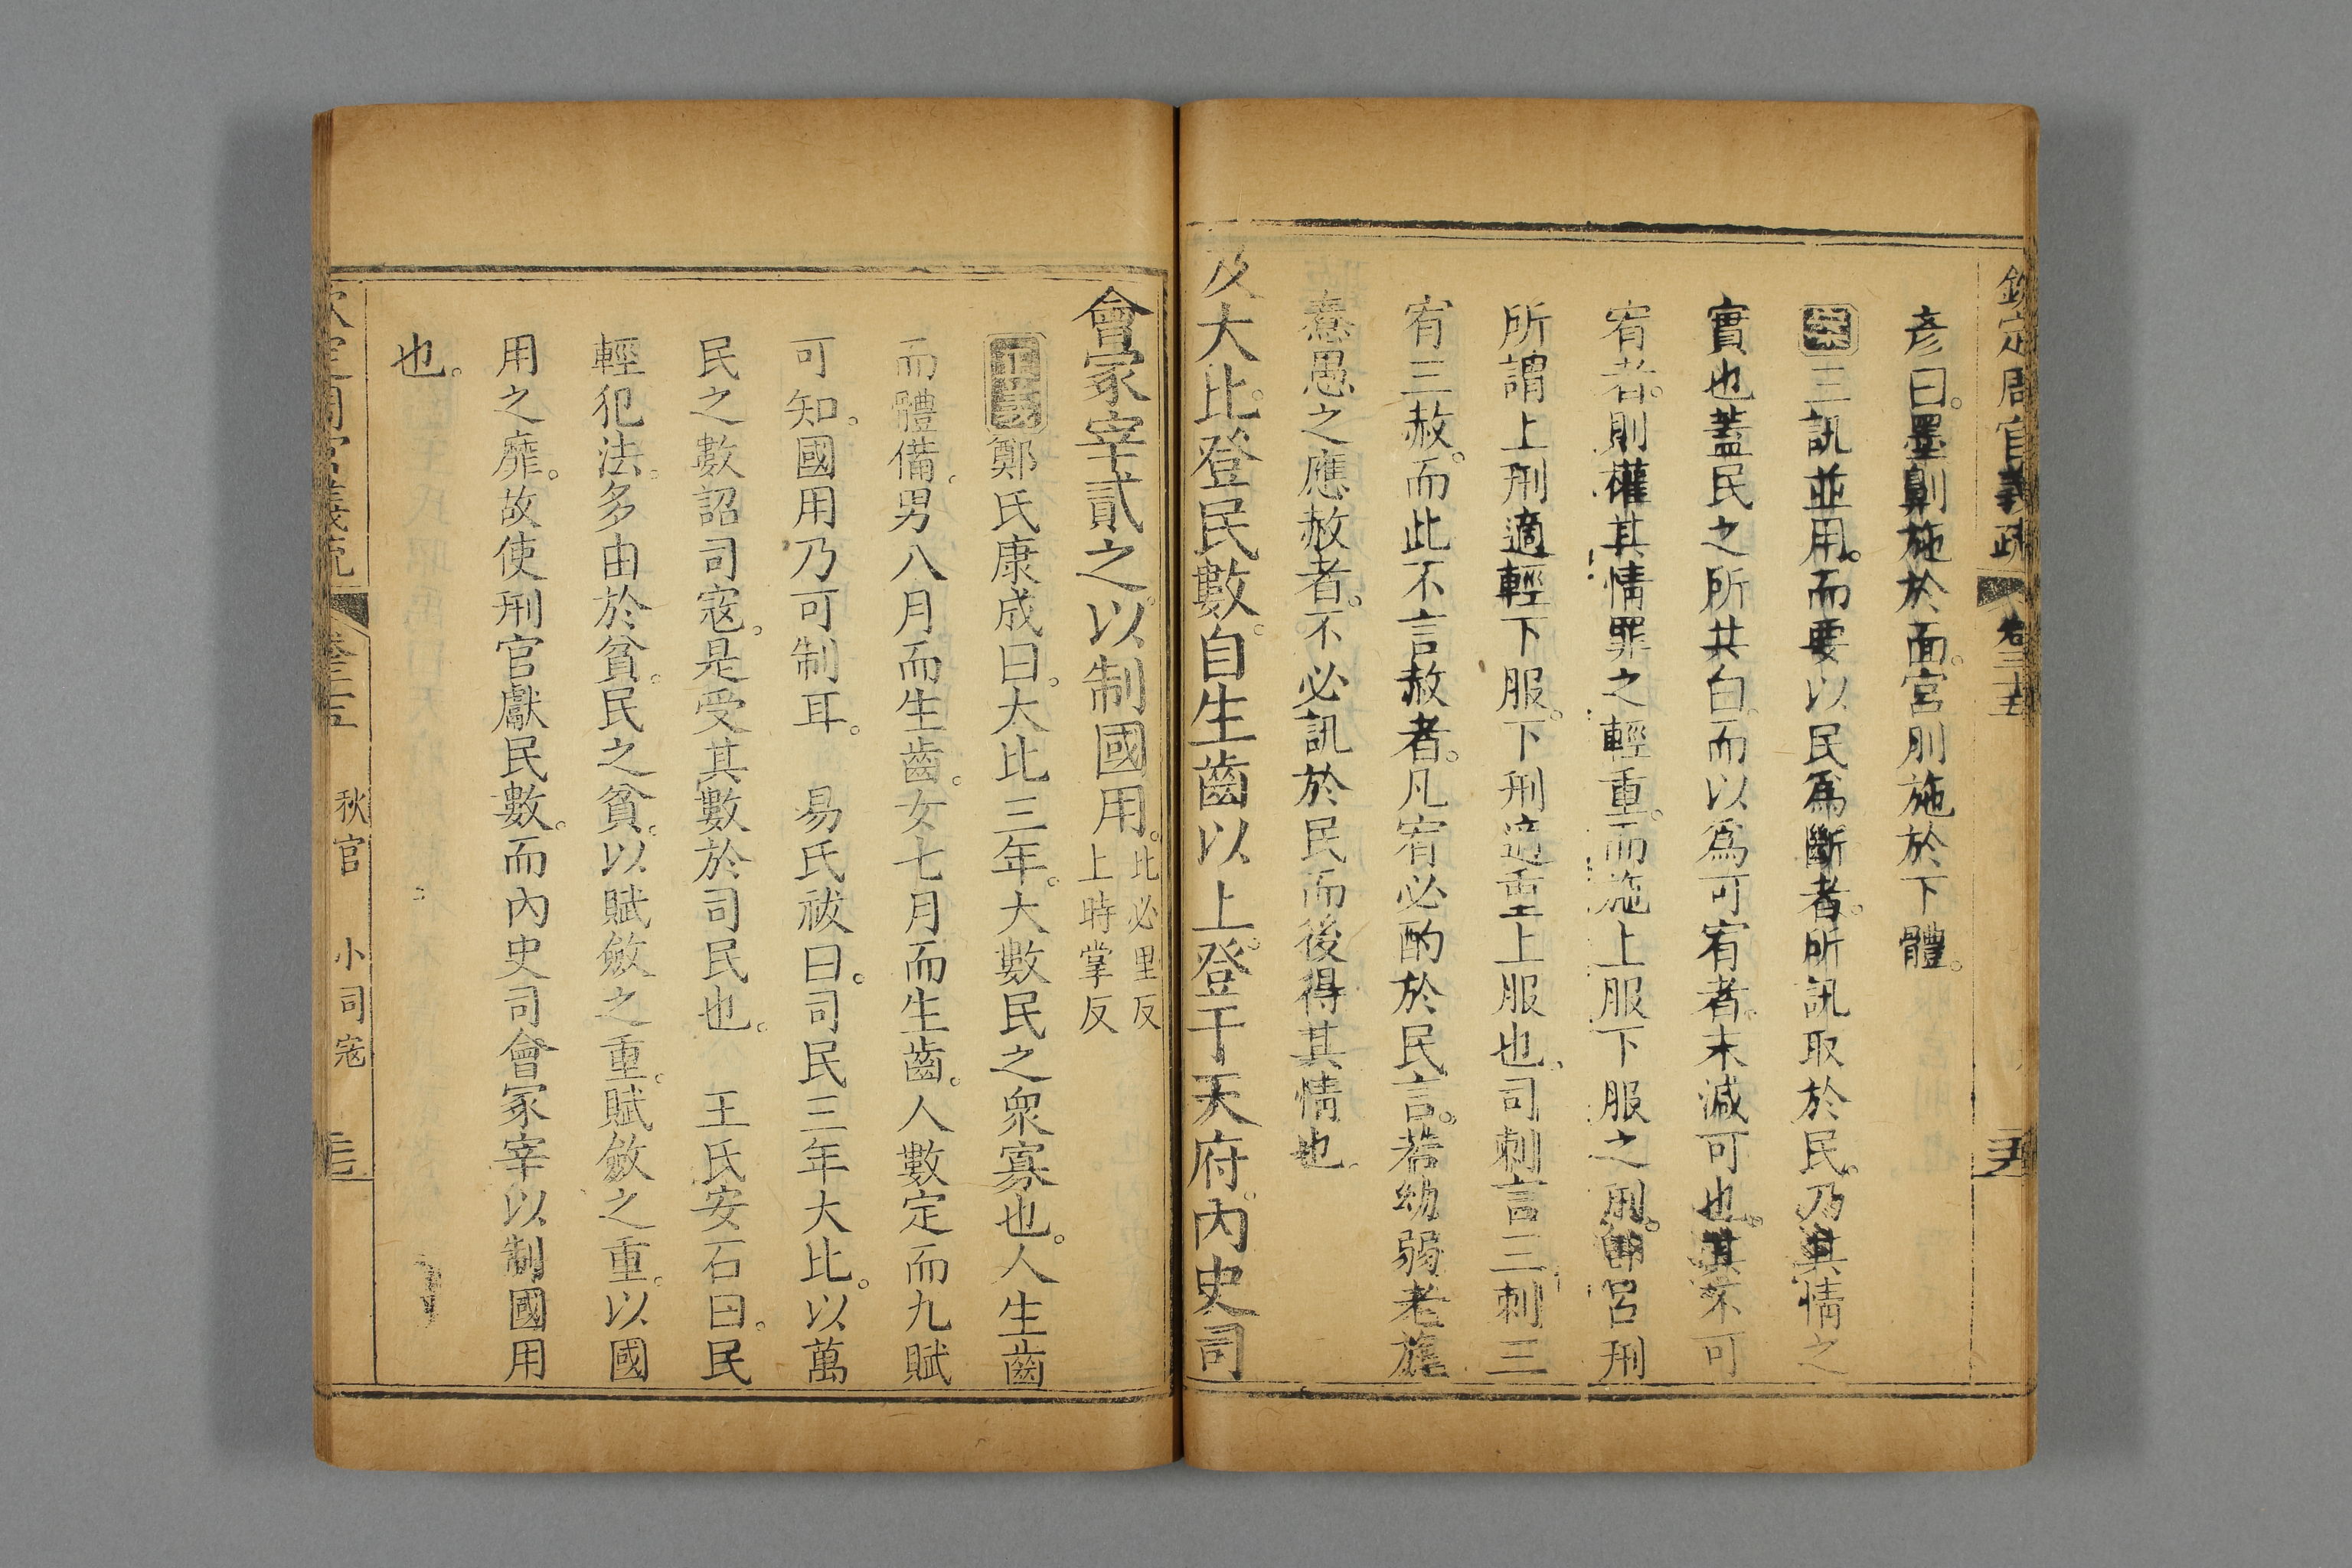 欽定周官義疏 卷三十五
彥曰。墨劓施於面。宮刖施於下體。
案三訊並用。而要以民爲斷者。所訊取於民。乃其情之
實也蓋民之所共白。而以爲可宥者。末減可也。其不可
宥者。則權其情罪之輕重。而施上服下服之刑。卽呂刑
所謂上刑適輕下服。下刑適重上服也。司刺言三刺三
宥三赦。而此不言赦者。凡宥必酌於民言。若幼弱老旄
憃愚之應赦者。不必訊於民而後得其情也。
及大比。登民數。自生齒以上。登于天府。內史司
會冢宰貳之。以制國用。比必里反
上時掌反
正義鄭氏康成曰。大比三年。大數民之衆寡也。人生齒
而體備。男八月而生齒。女七月而生齒。人數定而九賦
可知。國用乃可制耳。 易氏祓曰。司民三年大比。以萬
民之數詔司寇。是受其數於司民也。 王氏安石曰。民
輕犯法。多由於貧。民之貧。以賦斂之重。賦斂之重。以國
用之靡。故使刑官獻民數。而內史司會冢宰以制國用
也。
欽定周官義疏 卷三十五 秋官 小司寇